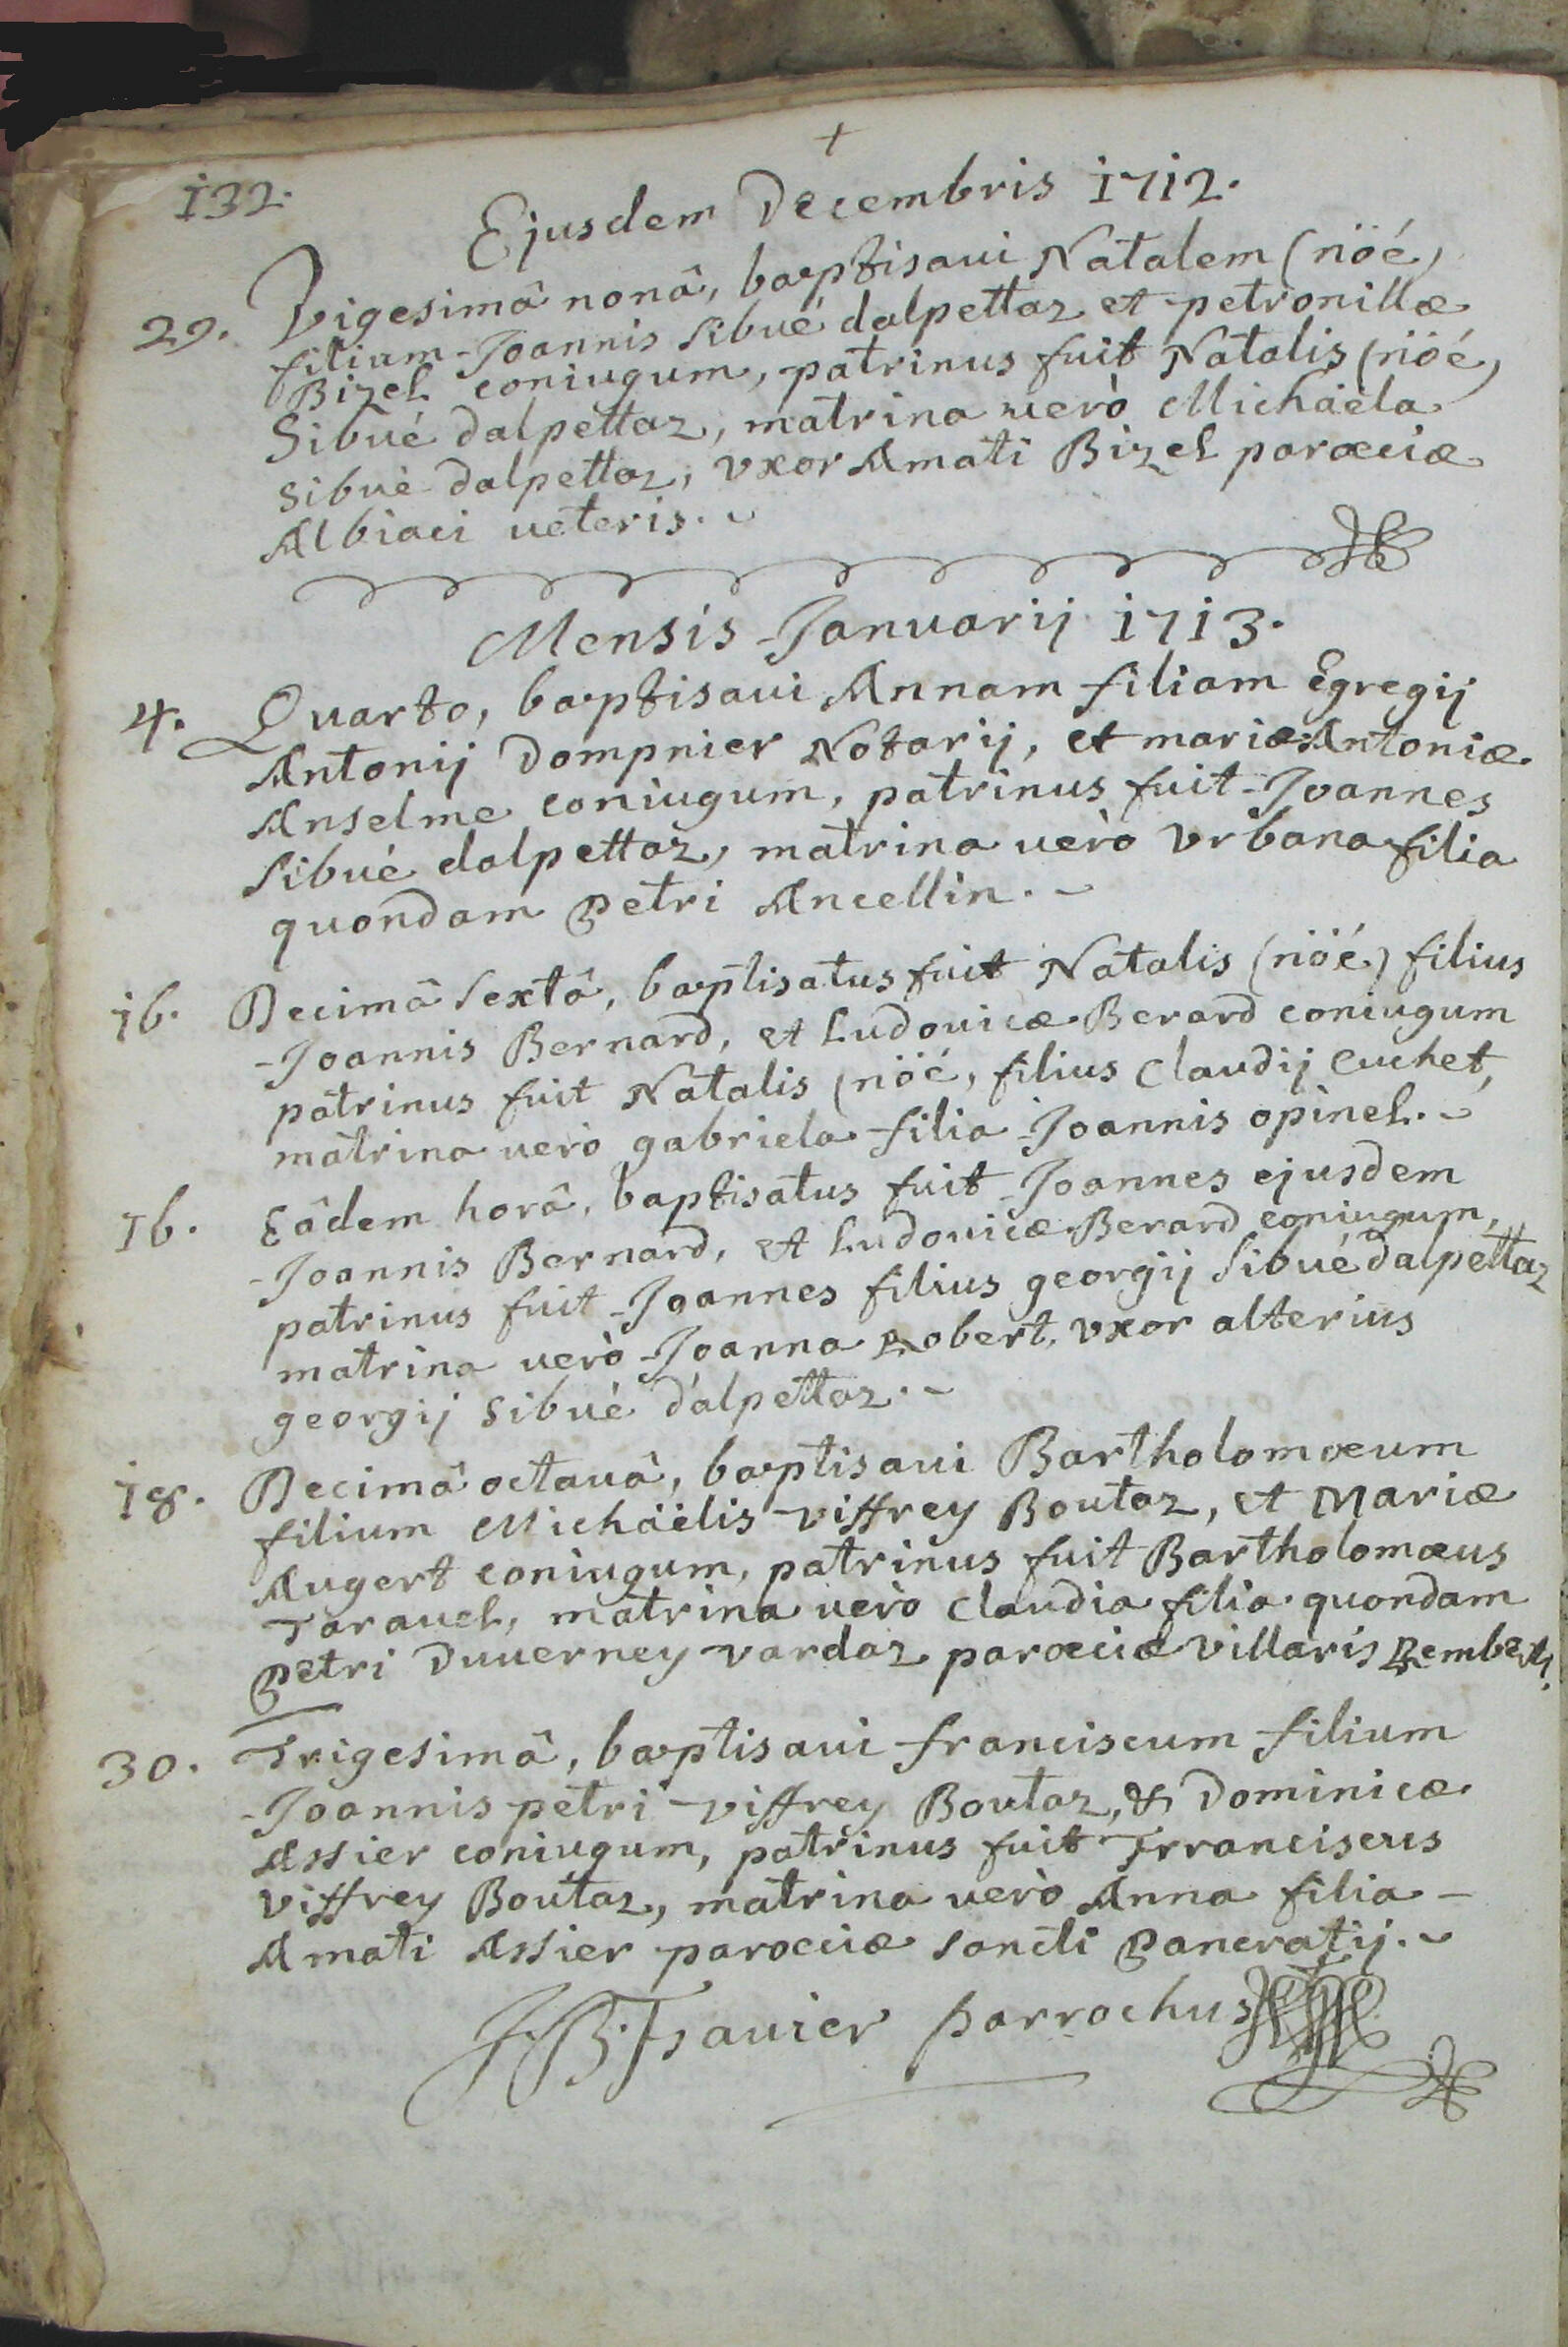 +
132.
Ejusdem Decembris 1712.
29. Vigesimâ nonâ, baptisaui Natalem (nöé)
filium Joannis Sibué dalpettaz et petronillæ
Bizel coniugum, patrinus fuit Natalis (nöé)
Sibué dalpettaz, matrina verò Michaela
Sibué dalpettaz, vxor Amati Bizel parœciæ
Albiaci ueteris.
Mensis Januarij 1713.
4. Quarto, baptisaui Annam filiam Egregij
Antonij Dompnier Notarij, et mariæ Antoniæ
Anselme coniugum, patrinus fuit Joannes
Sibué dalpettaz, matrina uerò Vrbana filia
quondam Petri Ancellin.
16. Decimâ Sextâ, baptisatus fuit Natalis (nöé) filius
Joannis Bernard, et Ludouicæ Berard coniugum
patrinus fuit Natalis (nöé, filius Claudij Cuchet,
matrina uerò gabriela filia Joannis opinel.
16. Eâdem horâ, baptisatus fuit Joannes ejusdem
Joannis Bernard, et Ludouicæ Berard coniugum,
patrinus fuit Joannes filius georgij Sibué dalpettaz
matrina uerò Joanna Robert, vxor alterius
georgij Sibué d'alpettaz.
18. Decimâ octauâ, baptisaui Bartholomœum
filium Michäëlis Viffrey Boutaz, et Mariæ
Augert coniugum, patrinus fuit Bartholomœus
Tarauel, matrina uerò Claudia filia quondam
Petri Duuerney Vardaz parœciæ Villaris
30. Trigesimâ, baptisaui franciscum filium
Joannis petri Viffrey Boutaz, & Dominicæ
Assier coniugum, patrinus fuit Franciscus
Viffrey Boutaz, matrina uerò Anna filia
Amati Assier parœciæ sancti Pancratij.
parrochus